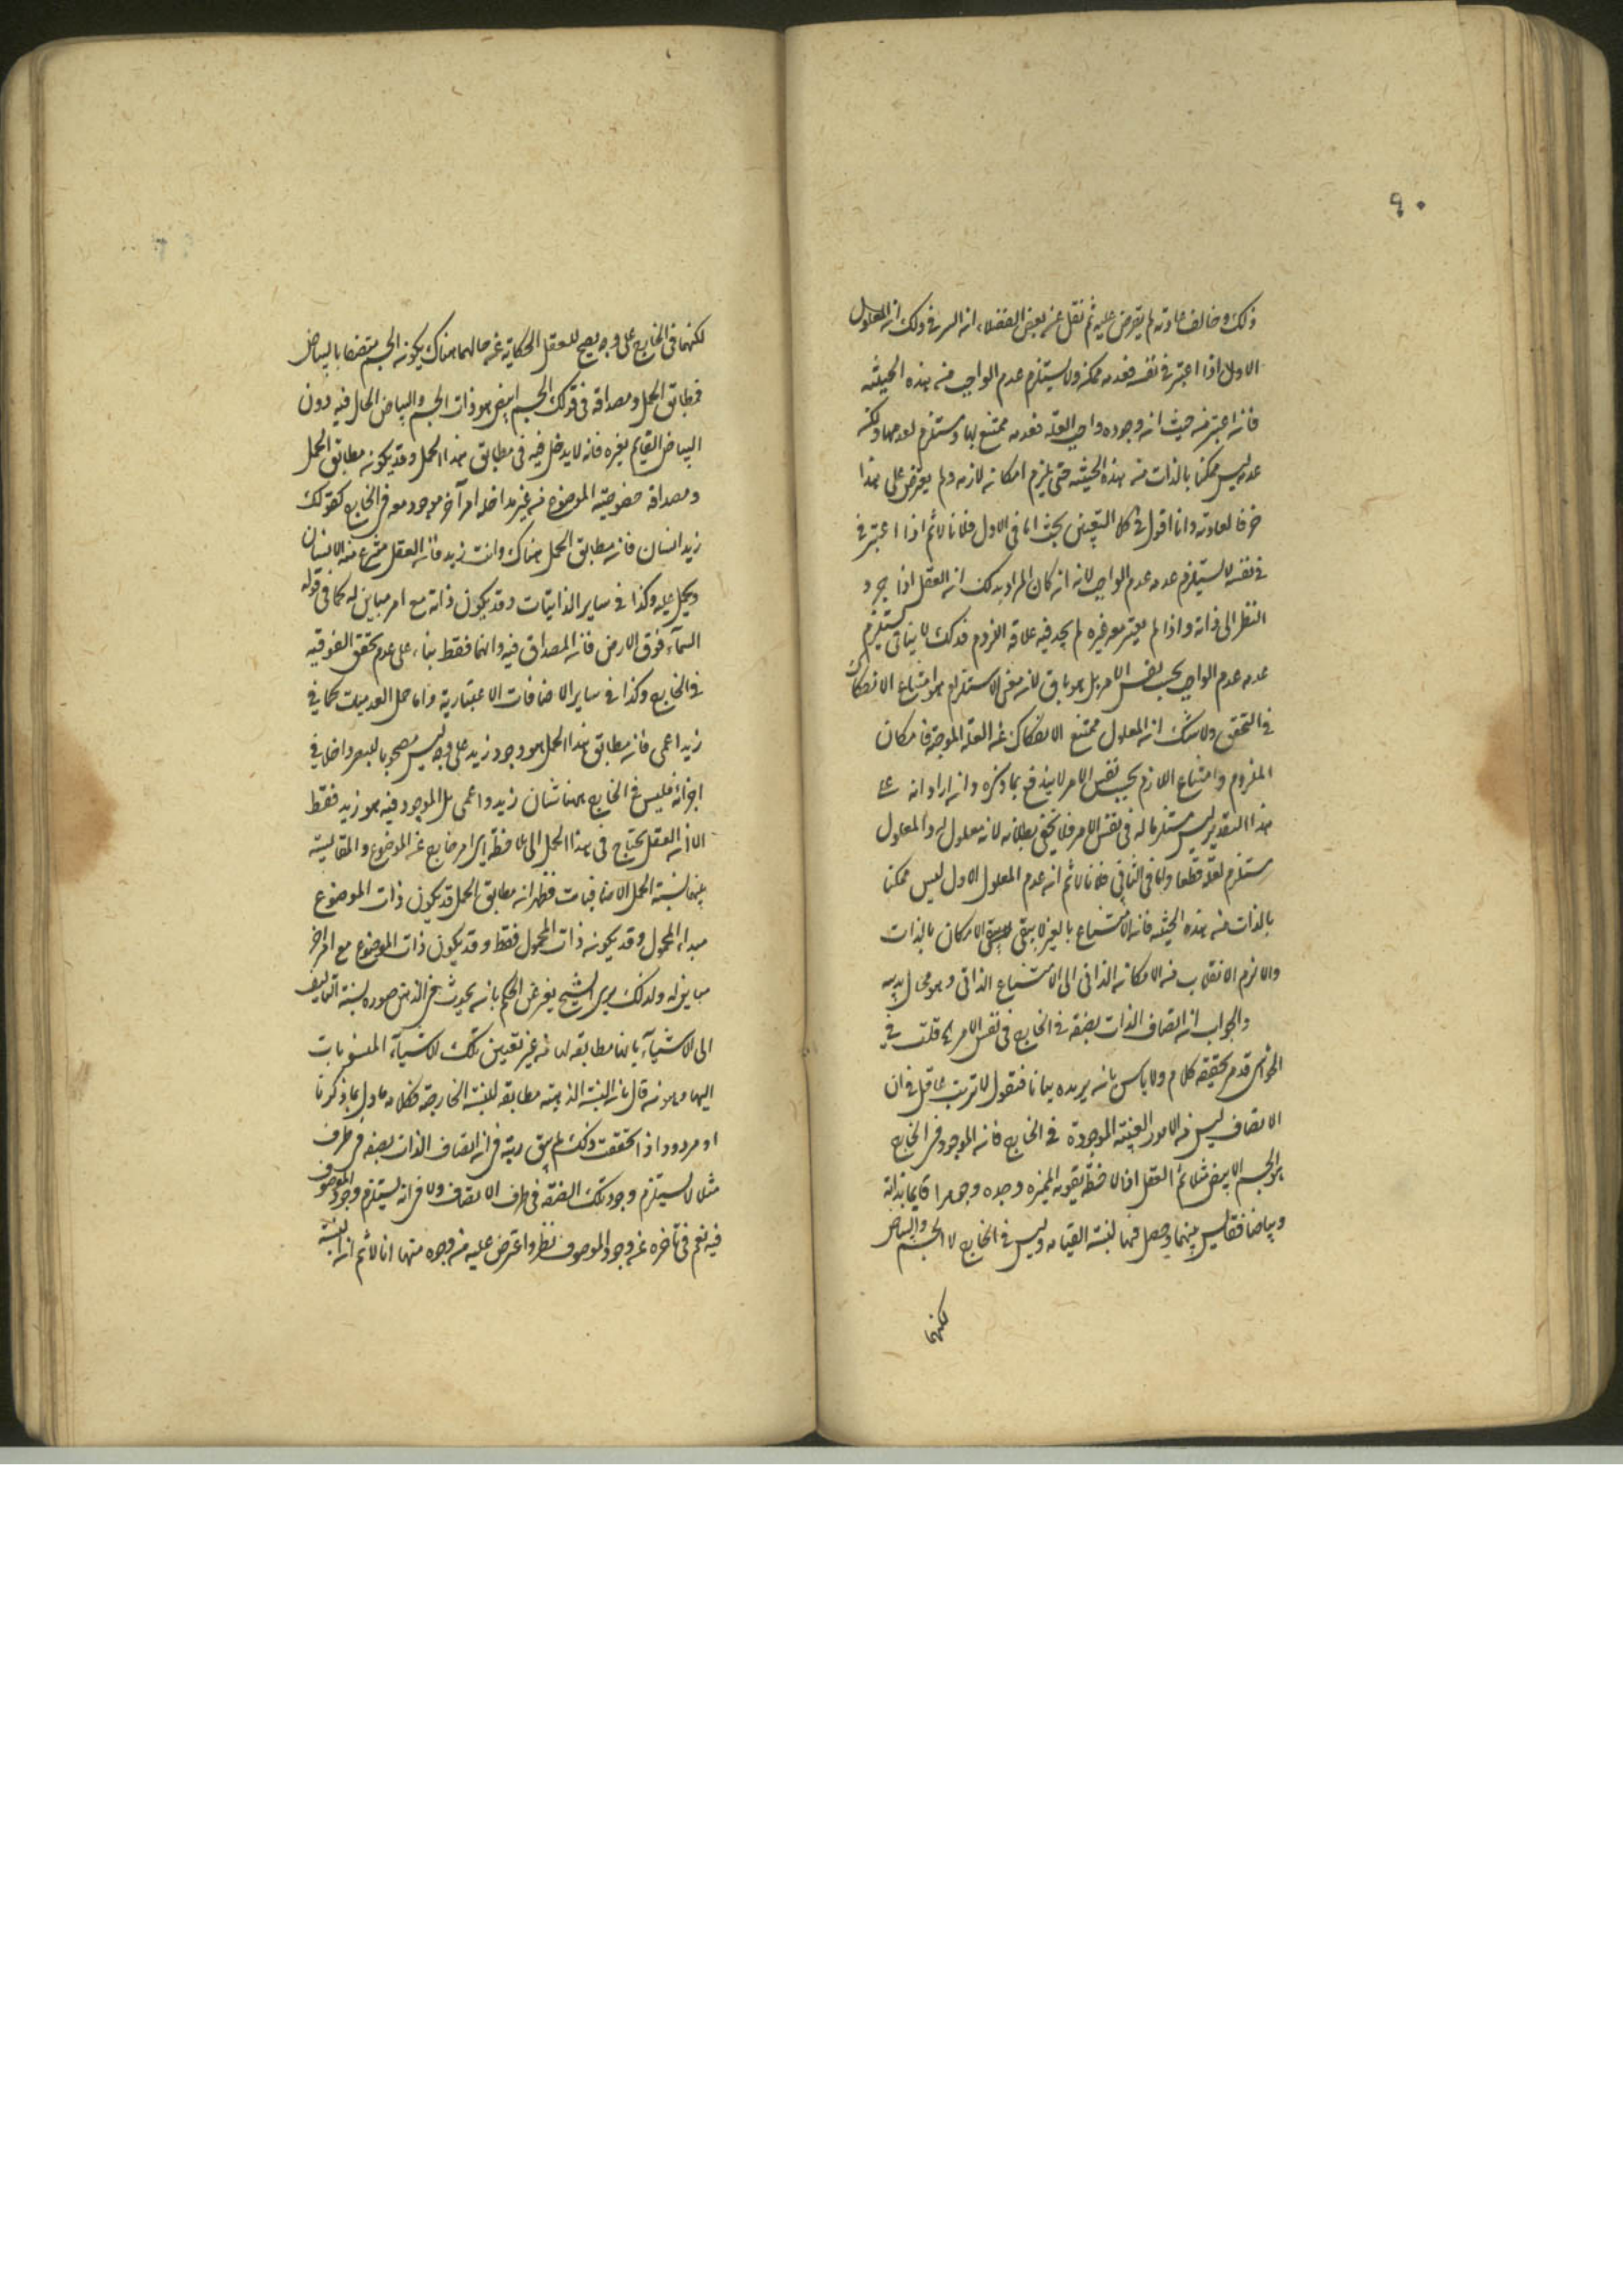 ٩٠
ذلك وخالف عادته لم يعترض عليه ثم نقل عن بعض الفضلاء ان السر في ذلك ان المعلول
الاول اذا اعتبر في نفسه فعدمه ممكن ولا يستلزم عدم الواجب من هذه الحيثية
فان اعتبر من حيث انه وجوده واجب بالعلة فعدمه ممتنع بها ومستلزم لعدمها ولكنه
عدمه ليس ممكنا بالذات من هذه الحيثية حتى يلزم امكان لازمه ولم يعترض على هذا
خرقا لعادته وانا اقول في كلا الشقين بحث اما في الاول فلانا لا نم اذا اعتبر في
في نفسه لا يستلزم عدمه عدم الواجب لانه ان كان المراد بذلك ان العقل اذا جرد
النظر الى ذاته واذا لم يعتبر معه غيره لم يجد فيه علاقة اللزوم فذلك لا ينافي يستلزم
عدمه عدم الواجب بحسب نفس الامر بل هو باق لان معنى الاستلزام هو امتناع الانفكاك
في التحقق ولا شك ان المعلول ممتنع الانفكاك عن العلة الموجبة فامكان
الملزوم وامتناع اللازم بحسب نفس الامر لا يندفع بما ذكره وان اراد انه على
هذا التقدير ليس مستلزما له في نفس الامر فلا يخفى بطلانه لانه معلول له والمعلول
مستلزم لعلته قطعا واما في الثاني فلانا لا نم ان عدم المعلول الاول ليس ممكنا
بالذات من هذه الحيثية فان الامتناع بالغير لا ينفي الامكان بالذات
والا لزم الانقلاب من الامكان الذاتي الى الامتناع الذاتي وهو محال بديهة
والجواب ان اتصاف الذات بصفة في الخارج في نفس الامر الخ قلت في
الحواشي قد مر تحقيقه كلام ولا باس بان يريده بيانا فنقول لا تريب عاقل في ان
الاتصاف ليس من الامور العينية الموجودة في الخارج فان الموجود في الخارج
هو الجسم الابيض مثلا ثم العقل اذا لاحظه بقوته المميزة وجده جوهرا قايما بذاته
وبياضا فقايس بينهما وحصل فيها نسبة القيام وليس في الخارج الا الجسم والبياض
لكنهما
لكنهما في الخارج على وجه يصح للعقل الحكاية عن حالهما هناك بكون الجسم متصفا بالبياض
فمطابق الحمل ومصداقه في قولك الجسم ابيض هو ذات الجسم والبياض الحال فيه دون
البياض القايم بغيره فانه لا يدخل فيه في مطابق هذا الحمل وقد يكون مطابق الحمل
ومصداقه خصوصية الموضوع من غير مداخلة امر آخر موجود معه في الخارج كقولك
زيد انسان فان مطابق الحمل هناك ذات زيد فان العقل ينتزع منه الانسان
ويحمل عليه وكذا في ساير الذاتيات وقد يكون ذاته مع امر مباين له كما في قوله
السماء فوق الارض فان المصداق فيه ذاتهما فقط بناء على عدم تحقق الفوقية
في الخارج وكذا في ساير الاضافات الاعتبارية واما حمل العدميات كما في
زيد اعمى فان مطابق هذا الحمل هو وجود زيد على وجه ليس مصحوبا بالبصر داخلا في
اجزائه فليس في الخارج هنا شيئان زيد واعمى بل الموجود فيه هو زيد فقط
الا ان العقل يحتاج في هذا الحمل الى ملاحظة امر خارج عن الموضوع والمقايسة
بينهما نسبة الحمل الاضافيات فظهر ان مطابق الحمل قد يكون ذات الموضوع
مبدا المحمول وقد يكون ذات المحمول فقط وقد يكون ذات الموضوع مع امر آخر
مباين له ولذلك يرى الشيخ يعرض عن الحكم بانه يحدث في الذهن صورة نسبة التاليف
الى الاشياء بانها مطابقة لها من غير تعيين تلك الاشياء المنسوبات
اليها ومن قال بان النسبة الذهنية مطابقة للنسبة الخارجة فكلامه ماول بما ذكرنا
او مردود اذا تحققت ذلك لم يبق ريبة في ان اتصاف الذات بصفة في ظرف
مثلا لا يستلزم وجود تلك الصفة في ظرف الاتصاف ولا في انه يستلزم وجود الموصوف
فيه نعم في تاخره عن وجود الموصوف نظر واعترض عليه من وجوه منها انا لا نم ان النسبة